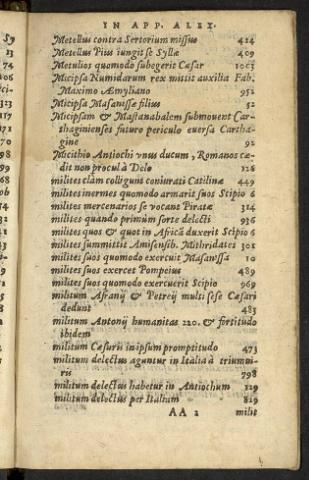 IN APP. ALEX.
Metellus contra Sertorium missus 424
Metellus Pius iungit se Syllæ 409
Metulios quomodo subegerit Cæsar 1003
Micipsa Numidarum rex mittit auxilia Fab.
Maximo Æmyliano 952
Micipsa Masanissæ filius 52
Micipsam & Mastanabalem submouent Car-
thaginienses futuro periculo euersa Cartha
gine 92
Micithio Antiochi vnus ducum, Romanos cæ-
dit non procul à Delo 126
milites clàm colligunt coniurati Catilinæ 449
milites inermes quomodo armarit suos Scipio 6
milites mercenarios se vocant Piratæ 314
milites quando primùm sorte delecti 936
milites quos & quot in Africã duxerit Scipio 6
milites summittit Amisensib. Mithridates 301
milites suos quomodo exercuit Masanissa 10
milites suos exercet Pompeius 489
milites suos quomodo exercuerit Scipio 969
militum Afranij & Petreij multi sese Cæsari
dedunt 483
militum Antonij humanitas 220. & fortitudo
ibidem
militum Cæsaris in ipsum promptitudo 473
militum delectus aguntur in Italia à triumui-
ris 798
militum delectus habetur in Antiochum 129
militum delectus per Italiam 819
AA 2 milit
59
23
74
00
ci-
323
117
171
70
98
99